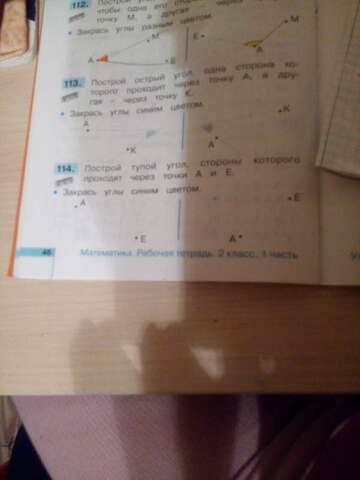 112.
чтобы одна его
через
точку М, а другая – через
Закрась углы разным цветом.
М
Е
М
А
Е
А
113. Построй острый угол, одна сторона ко-
торого проходит через точку А, а дру-
гая – через точку К.
Закрась углы синим цветом.
А
К
К
А
114. Построй тупой угол, стороны которого
проходят через точки А и Е.
Закрась углы синим цветом.
А
Е
Е
А
46 Математика. Рабочая тетрадь. 2 класс. 1 часть